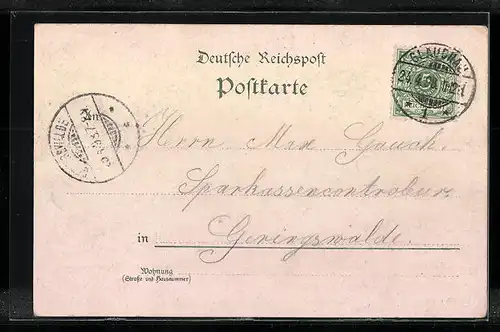 Deutsche Reichspost
Postkarte
GLAUCHAU
An
Herrn Max Gauch.
Sparkassencontroleur
in Geringswalde.
Wohnung
(Straße und Hausnummer)